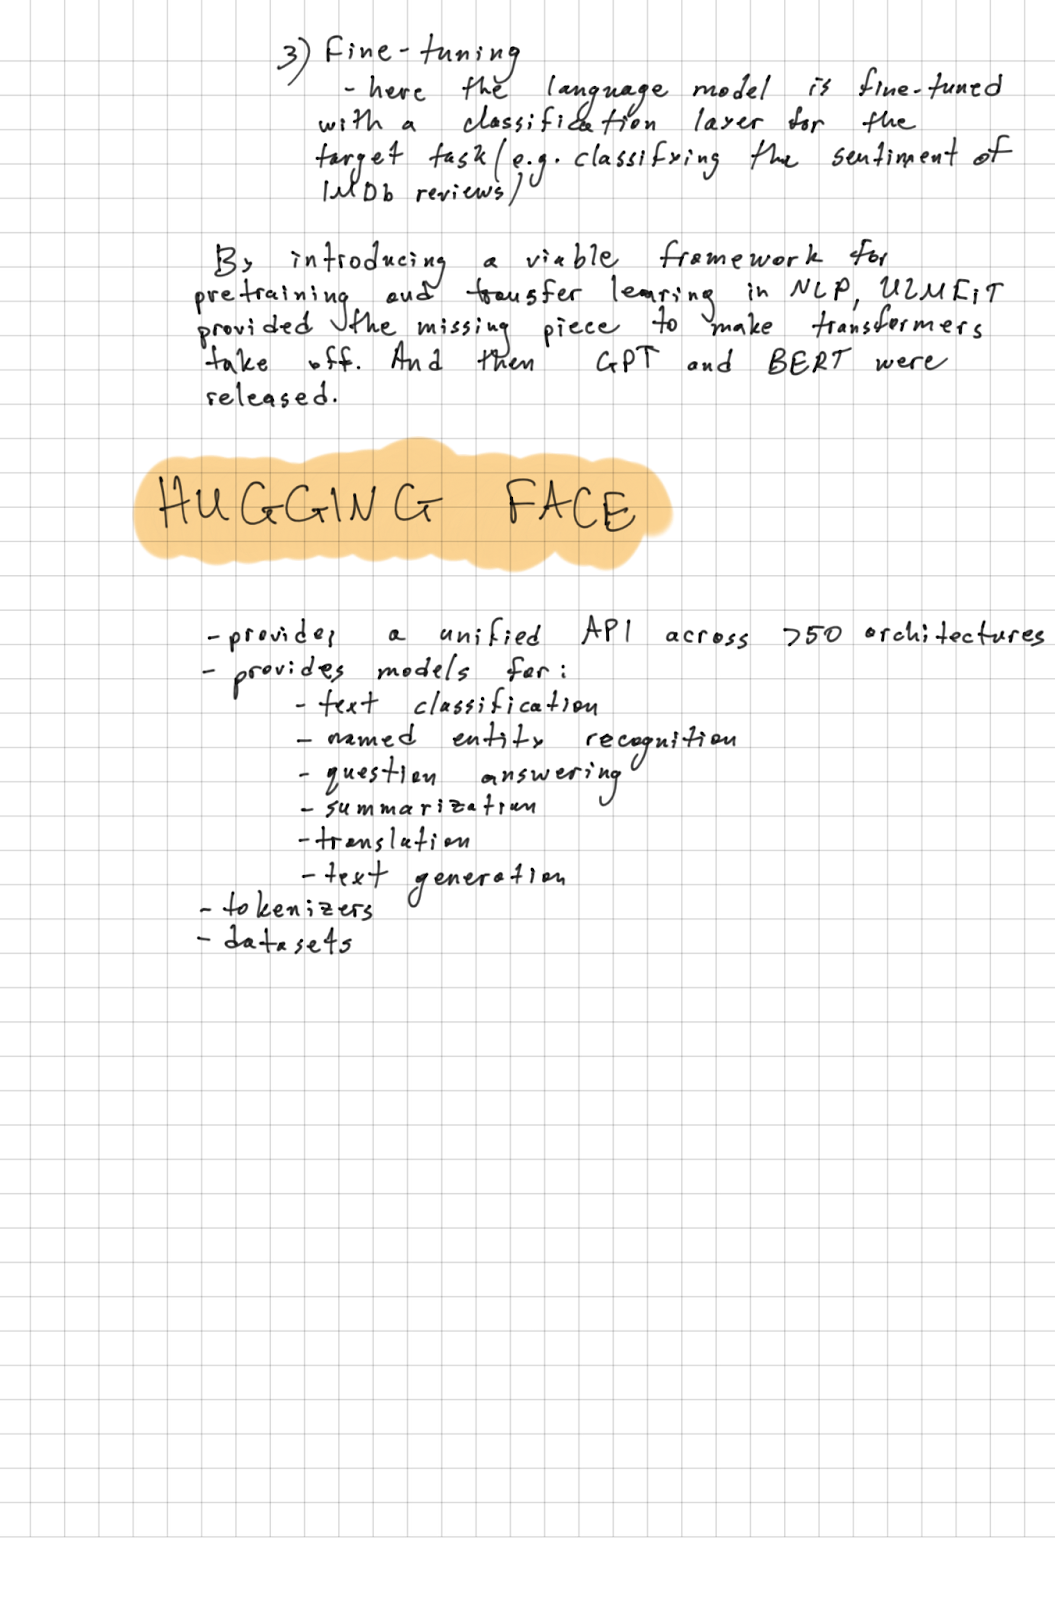 3) Fine-tuning
- here the language model is fine-tuned
with a classification layer for the
target task (e.g. classifying the sentiment of
IMDb reviews)
By introducing a viable framework for
pretraining and transfer learing in NLP, ULMFiT
provided the missing piece to make transformers
take off. And then GPT and BERT were
released.
HUGGING FACE
- provides a unified API across >50 architectures
- provides models for:
- text classification
- named entity recognition
- question answering
- summarization
- translation
- text generation
- tokenizers
- datasets